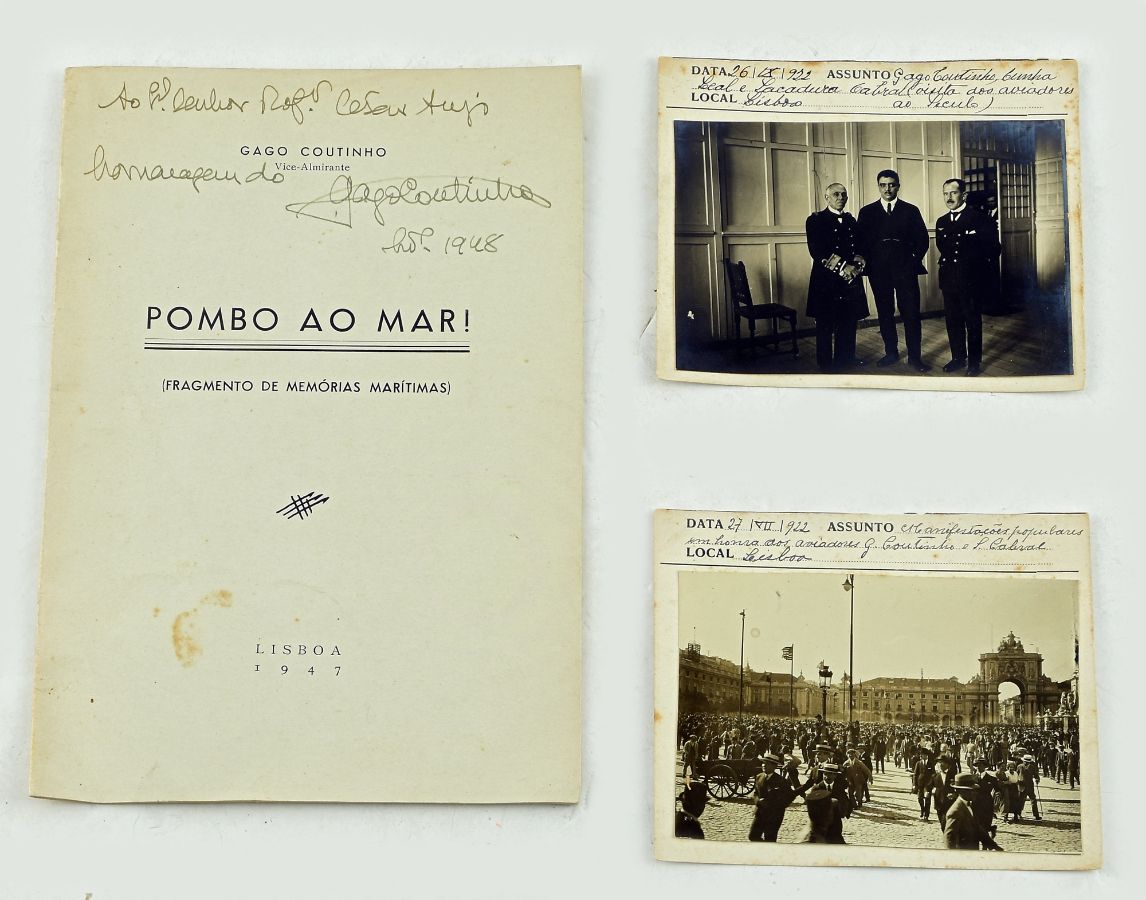 Ao Sr. Senhor Prof.r César
GAGO COUTINHO
Vice-Almirante
homenagem do Gago Coutinho
1948
POMBO AO MAR!
(FRAGMENTO DE MEMÓRIAS MARÍTIMAS)
LISBOA
1947
DATA 26/IX/922 ASSUNTO Gago Coutinho, Cunha
Leal e Sacadura Cabral (visita dos aviadores
LOCAL Lisboa ao Século)
DATA 27/ /922 ASSUNTO Manifestações populares
em honra dos aviadores G. Coutinho e S. Cabral
LOCAL Lisboa